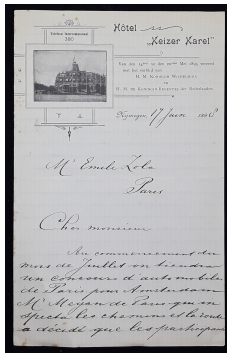 Hôtel
„Keizer Karel"
Telefoon Intercommunaal
Van den 14den tot den 20sten Mei 1895 vereerd
met het verblijf van
H. M. Koningin Wilhelmina
en
H. M. de Koningin-Regentes der Nederlanden.
Nijmegen, 17 Juin 189
Mr Emile Zola
Paris
Cher monsieur
Au commencement du
mois de Juillet on tiendra
un concours d'automobile
de Paris pour Amsterdam
Mr Meyan de Paris qui in-
specte les chemins et la route
a décidé que les participans